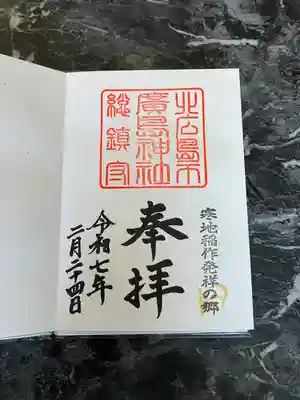 寒地稲作発祥の郷
北広島市
廣島神社
総鎮守
奉拝
令和七年
二月二十四日